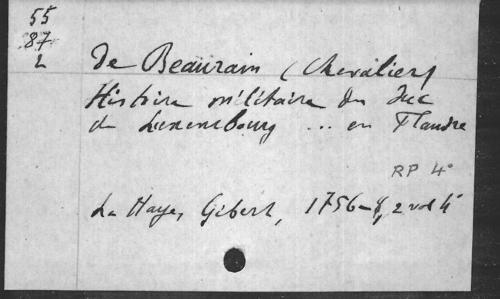 55
87
2
De Beaurain (Chevalier)
Histoire militaire du Duc
de Luxembourg ... en Flandre
RP 4°
La Haye, Gibert, 1756-8, 2 vol 4°